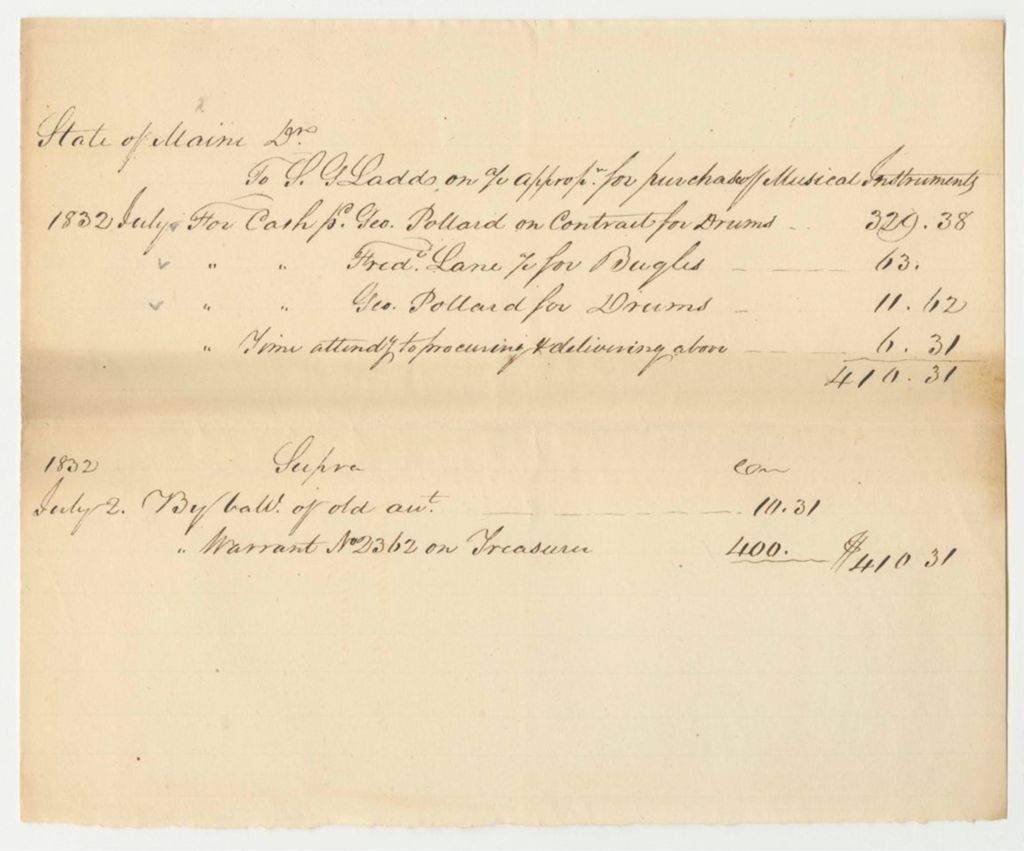 State of Maine Dr
To S. G Ladd, on % approp.n for purchase of Musical Instruments
1832 July For Cash pd. Geo. Pollard on Contract for Drums .. 329.38
" " Fredd. Lane % for Bugles 63.
" " Geo. Pollard for Drums 11.62
" Time attendg to procuring & delivering above 6.31
410.31
1832 Supra Cr
July 2. By ball. of old act. 10.31
" Warrant No 2362 on Treasurer 400. $410 31